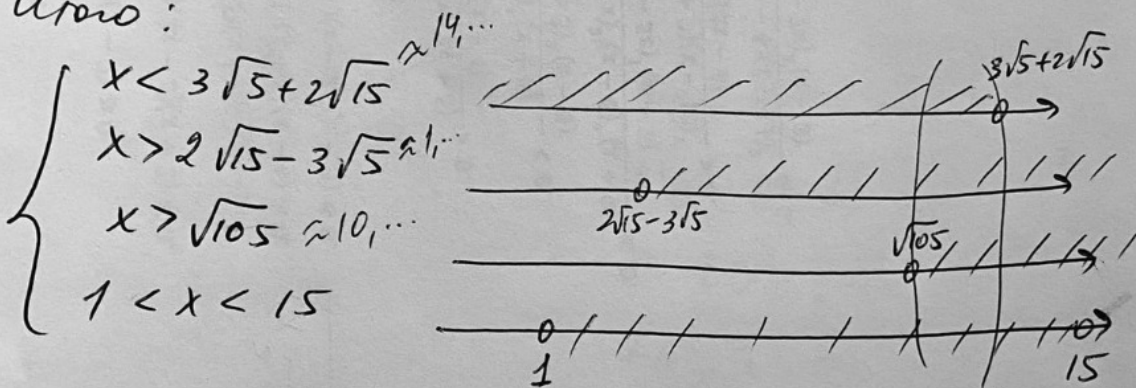 Итого:
x < 3√5+2√15 ≈14,...
x > 2√15-3√5 ≈1,...
x > √105 ≈10,...
1 < x < 15
3√5+2√15
2√15-3√5
√105
1
15